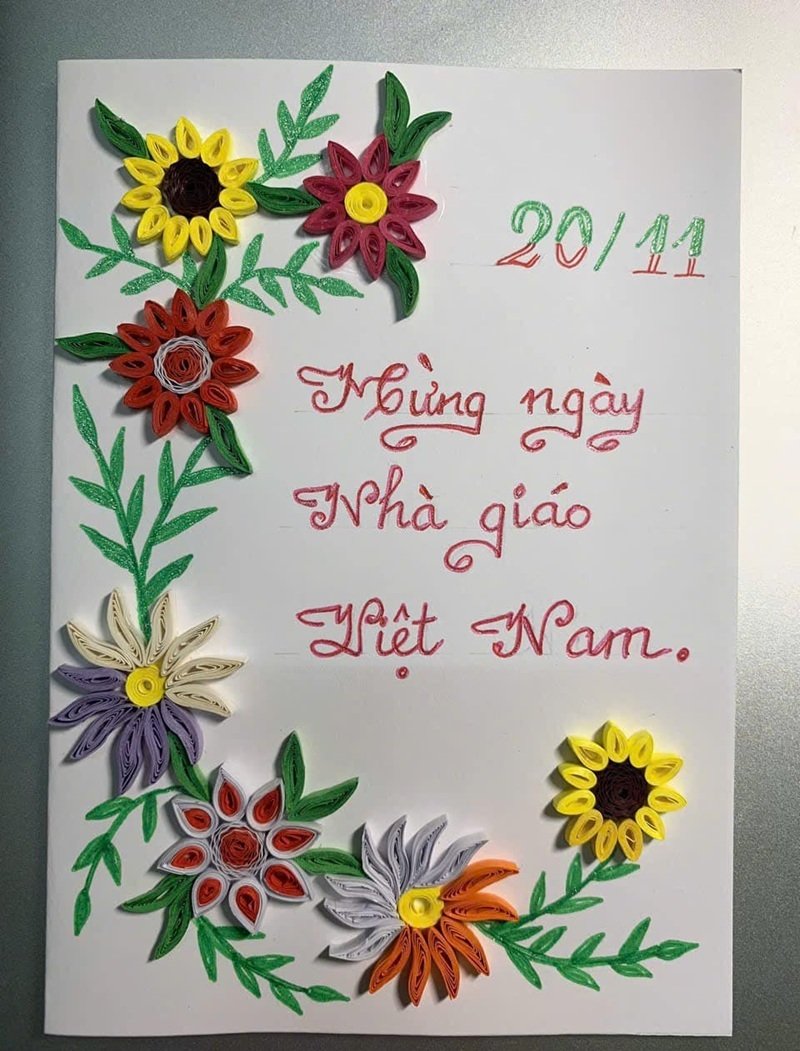 20/11
Mừng ngày
Nhà giáo
Việt Nam.